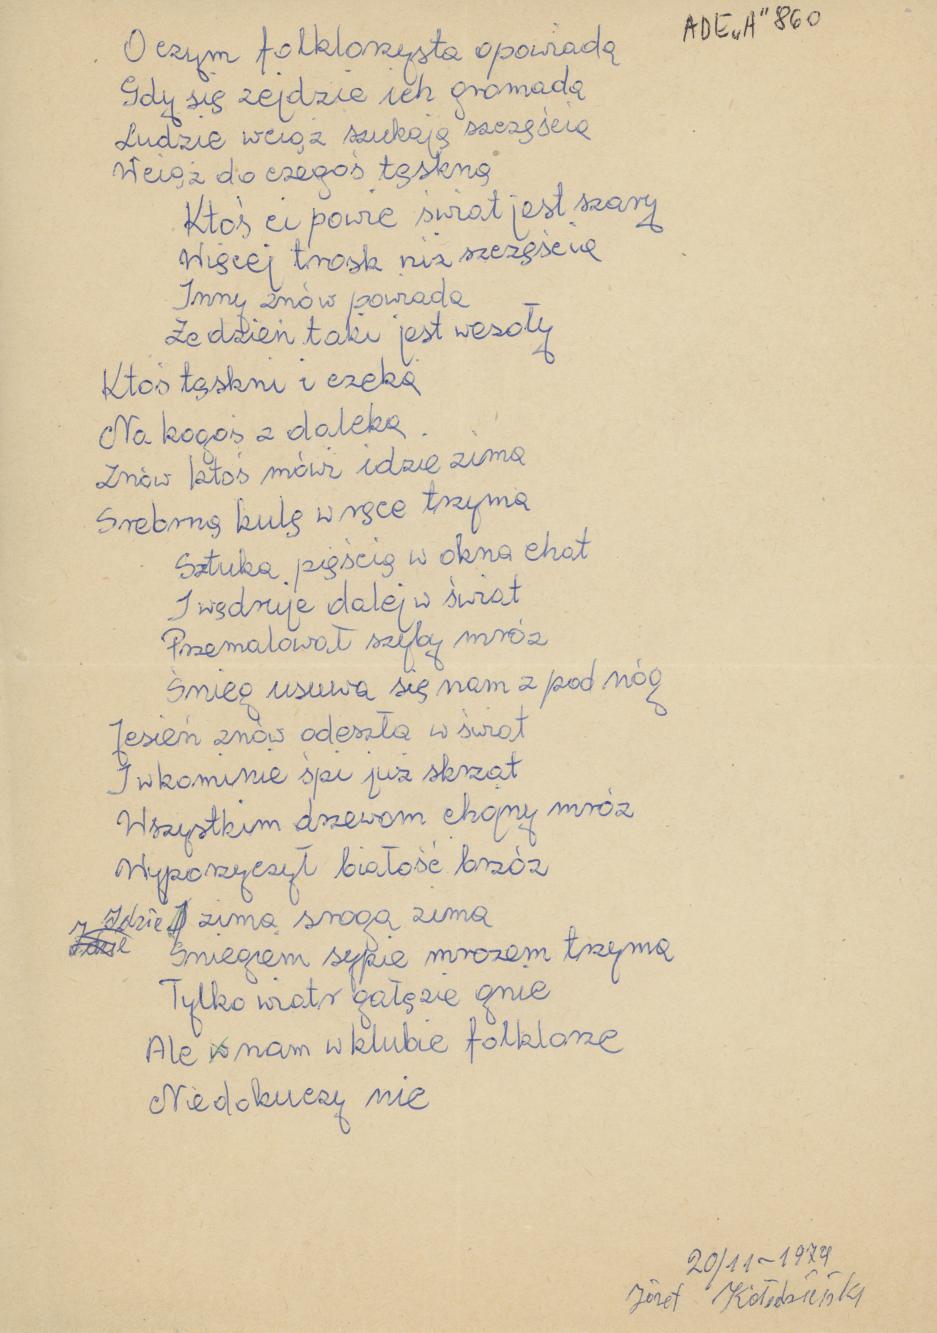 ADE„A" 860
O czym folklorzysta opowiada
Gdy się zejdzie ich gromada
Ludzie wciąż szukają szczęścia
Wciąż do czegoś tęskną
Ktoś ci powie świat jest szary
Więcej trosk niż szczęścia
Inny znów powiada
Że dzień taki jest wesoły
Ktoś tęskni i czeka
Na kogoś z daleka
Znów ktoś mówi idzie zima
Srebrną kulę w ręce trzyma
Sztuka pięścią w okna chat
I wędruje dalej w świat
Przemalował szyby mróz
Śnieg usuwa się nam z pod nóg
Jesień znów odeszła w świat
I w kominie śpi już skrzat
Wszystkim drzewom chojny mróz
Wyporzyczył białość brzóz
Idzie zima sroga zima
Śniegiem sypie mrozem trzyma
Tylko wiatr gałęzie gnie
Ale nam w klubie folklorze
Niedokuczy nie
20/11-1979
Józef